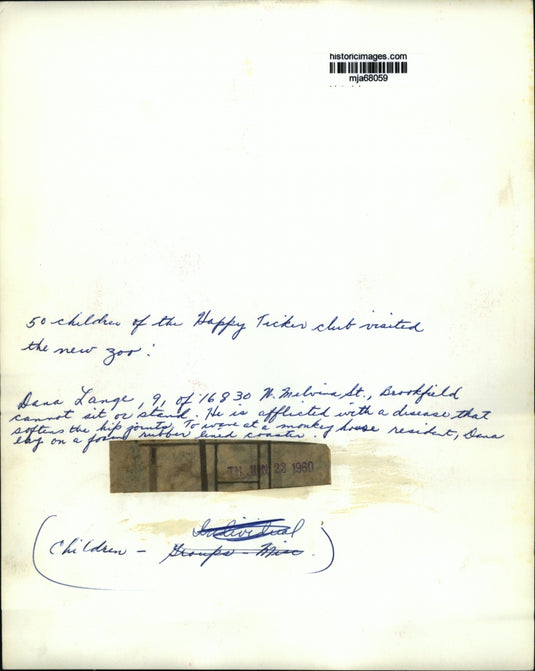 historicimages.com
mja68059
50 children of the Happy Ticker club visited
the new zoo.
Dana Lange, 9, of 16830 W. Melvina St., Brookfield
cannot sit or stand. He is afflicted with a disease that
softens the hip joints. To wave at a monkey house resident, Dana
lay on a foam rubber lined coaster.
JUN 23 1960
Individual
Children - Groups - Misc.